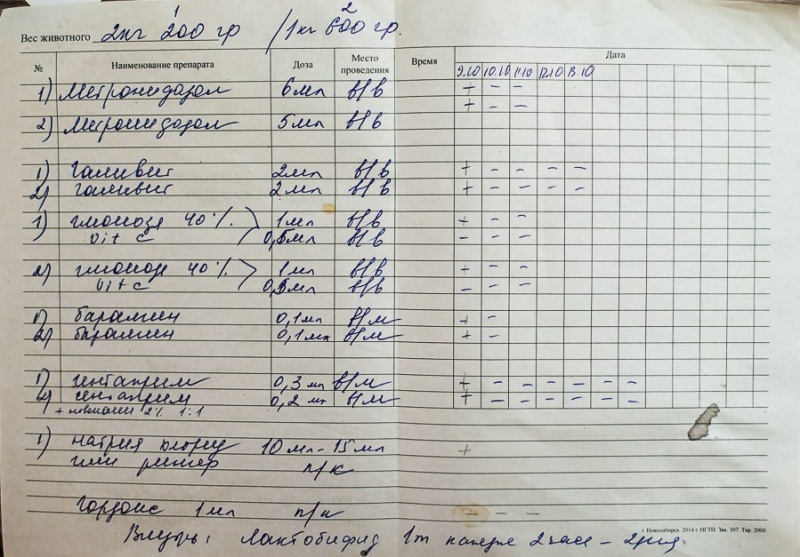 1 2
Вес животного 2кг 200 гр /1кг 600 гр.
№ Наименование препарата Доза Место проведения Время Дата
9.10 10.10 11.10 12.10 13.10
1) Метронидазол 6мл в/в + - -
+ - -
2) Метронидазол 5мл в/в
1) Гамавит 2мл в/в + - - - -
2) Гамавит 2мл в/в + - - - -
1) глюкоза 40% 1мл в/в + - -
vit c 0,5мл в/в - - -
2) глюкоза 40% 1мл в/в + - -
vit c 0,5мл в/в - - -
1) баралгин 0,1мл в/м + -
2) баралгин 0,1мл в/м + -
1) гентаприм 0,3 мл в/м + - - - - - -
2) гентаприм 0,2 мл в/м + - - - - - -
+ новокаин 2% 1:1
1) натрия хлорид 10мл - 15мл +
или рингер п/к
Гордокс 1мл п/к - - -
г. Новосибирск 2014 г НГТП Зак 307 Тир 2000
Внутрь: Лактобифид 1т каждые 2 часа - 2дня.